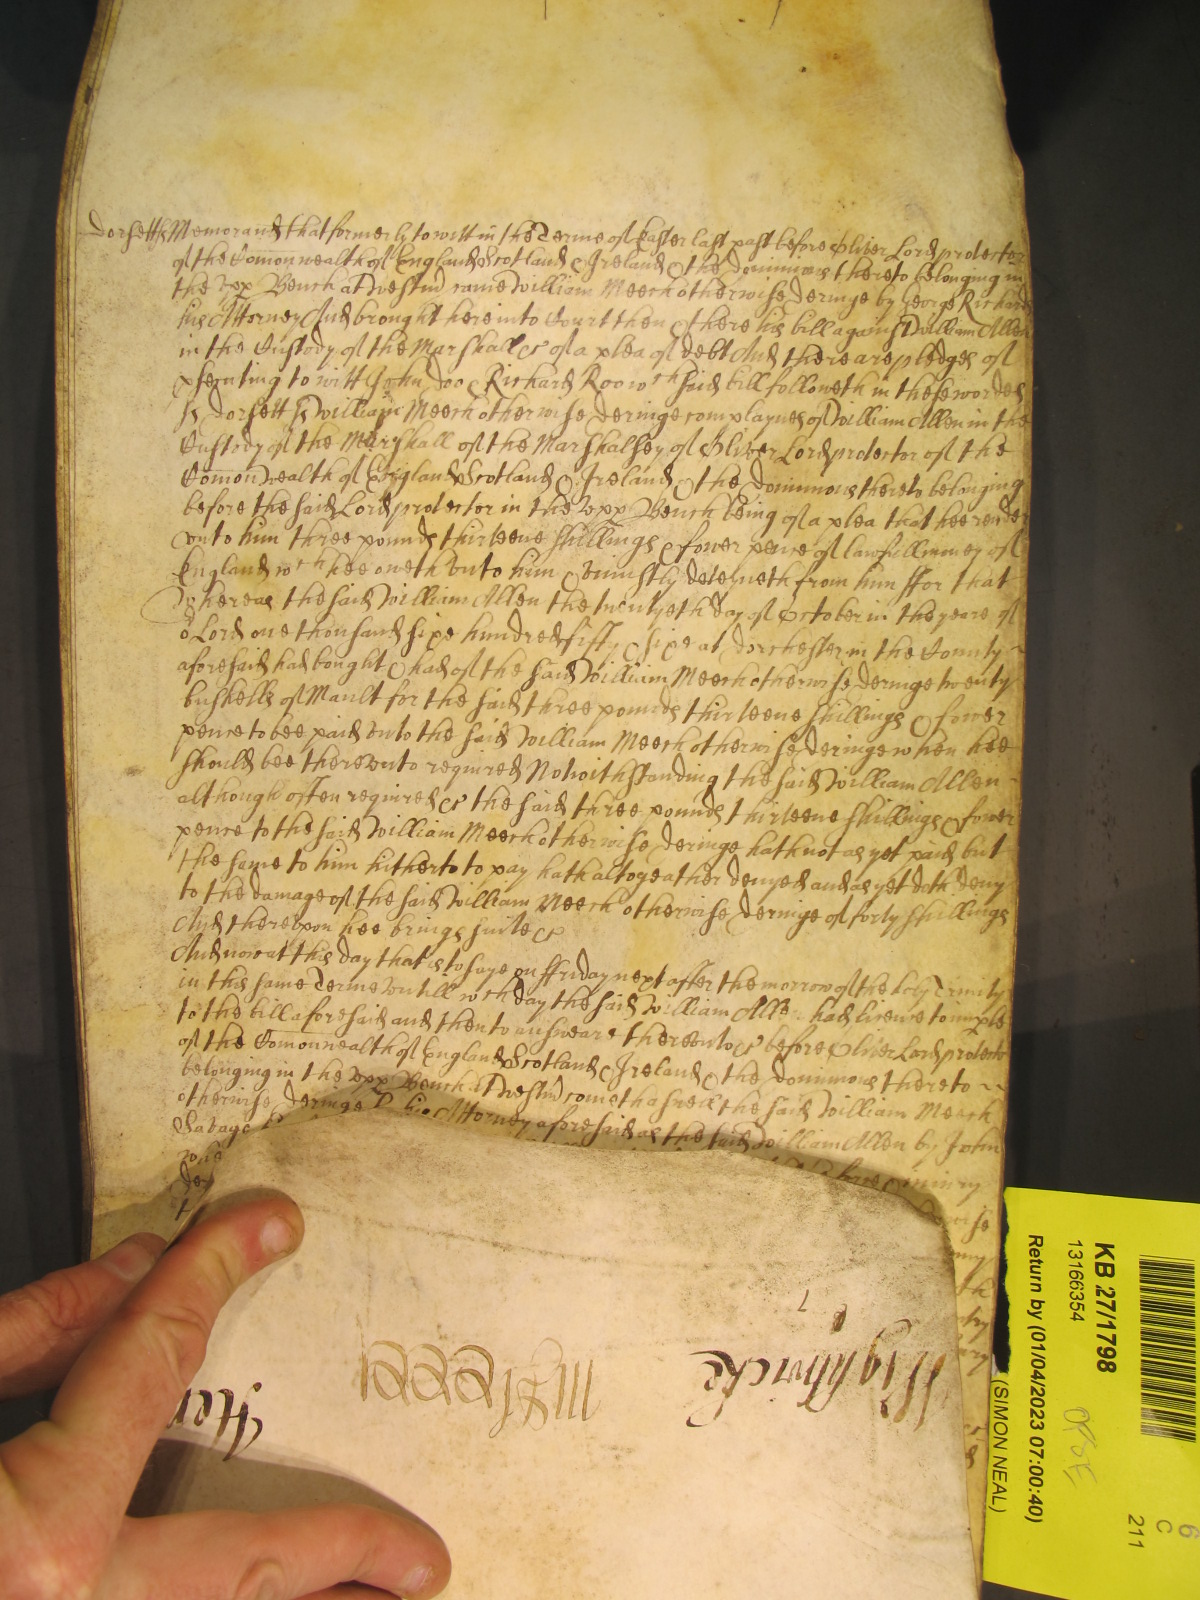 Dorsett ss Memorand that formerly to witt in the Terme of Easter last past before Oliver Lord protector
of the Comonwealth of England Scotland & Ireland & the dominions thereto belonging in
the upp Bench at Westm came William Meech otherwise Deringe by George Richard
his Attorney And brought here into Court then & there his bill against William Allen
in the Custody of the Marshall &c of a plea of debt And there are pledges of
psecuting to witt John Doo & Richard Roo wch said bill followeth in these wordes
ss Dorsett ss William Meech otherwise Deringe complaynes of William Allen in the
Custody of the Marshall of the Marshalsey of Oliver Lord protector of the
Comonwealth of England Scotland & Ireland & the dominions thereto belonging
before the said Lord protector in the upp Bench being of a plea that hee render
unto him three pounds thirteene shillings & fower pence of lawfull money of
England wch hee oweth unto him & uniustly deteyneth from him ffor that
Whereas the said William Allen the twentyeth day of October in the yeare of
or Lord one thousand sixe hundred fifty & sixe at Dorchester in the County
aforesaid had bought & had of the said William Meech otherwise Deringe twenty
bushells of Mault for the said three pounds thirteene shillings & fower
pence to bee paid unto the said William Meech otherwise Deringe when hee
should bee thereunto required Notwithstanding the said William Allen
although often required &c the said three pounds thirteene shillings & fower
pence to the said William Meech otherwise Deringe hath not as yet paid but
the same to him hitherto to pay hath altogeather denyed and as yet doth deny
to the damage of the said William Meech otherwise Deringe of forty shillings
And thereupon hee brings suite &c
And now at this day that is to saye on ffriday next after the morrow of the holy Trinity
in this same Terme untill wch day the said William Alle had licence to imple
to the bill aforesaid and then to answeare thereunto &c before Oliver Lord protector
of the Comonwealth of England Scotland & Ireland & the dominions thereto
belonging in the upp Bench at Westm cometh aswell the said William Meech
otherwise Deringe P his Attorney aforesaid as the said William Allen by John
Savage
Wightwicke
KB 27/1798
13166354
Return by (01/04/2023 07:00:40)
(SIMON NEAL)
6
C
211